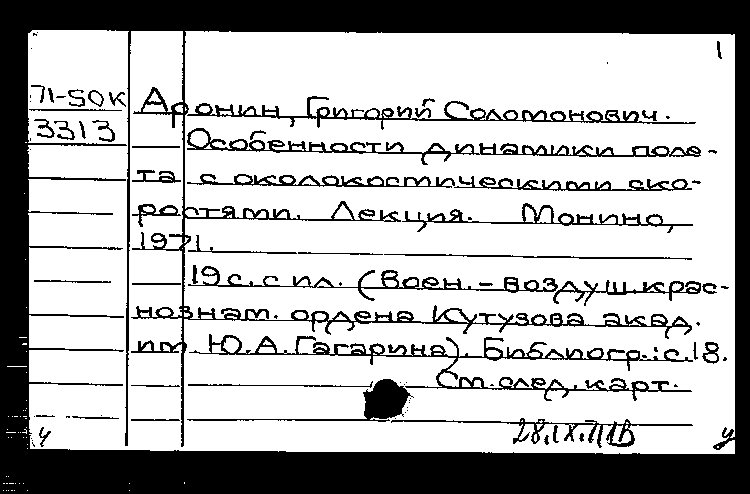 1
71-50К Аронин, Григорий Соломонович.
3313 Особенности динамики поле-
та с околокостическими ско-
ростями. Лекция. Монино,
1971.
19 с. с ил. (Воен.-воздуш. крас-
нознам. ордена Кутузова акад.
им. Ю. А. Гагарина). Библиогр.: с. 18.
См. след. карт.
у 28.IX.71В у